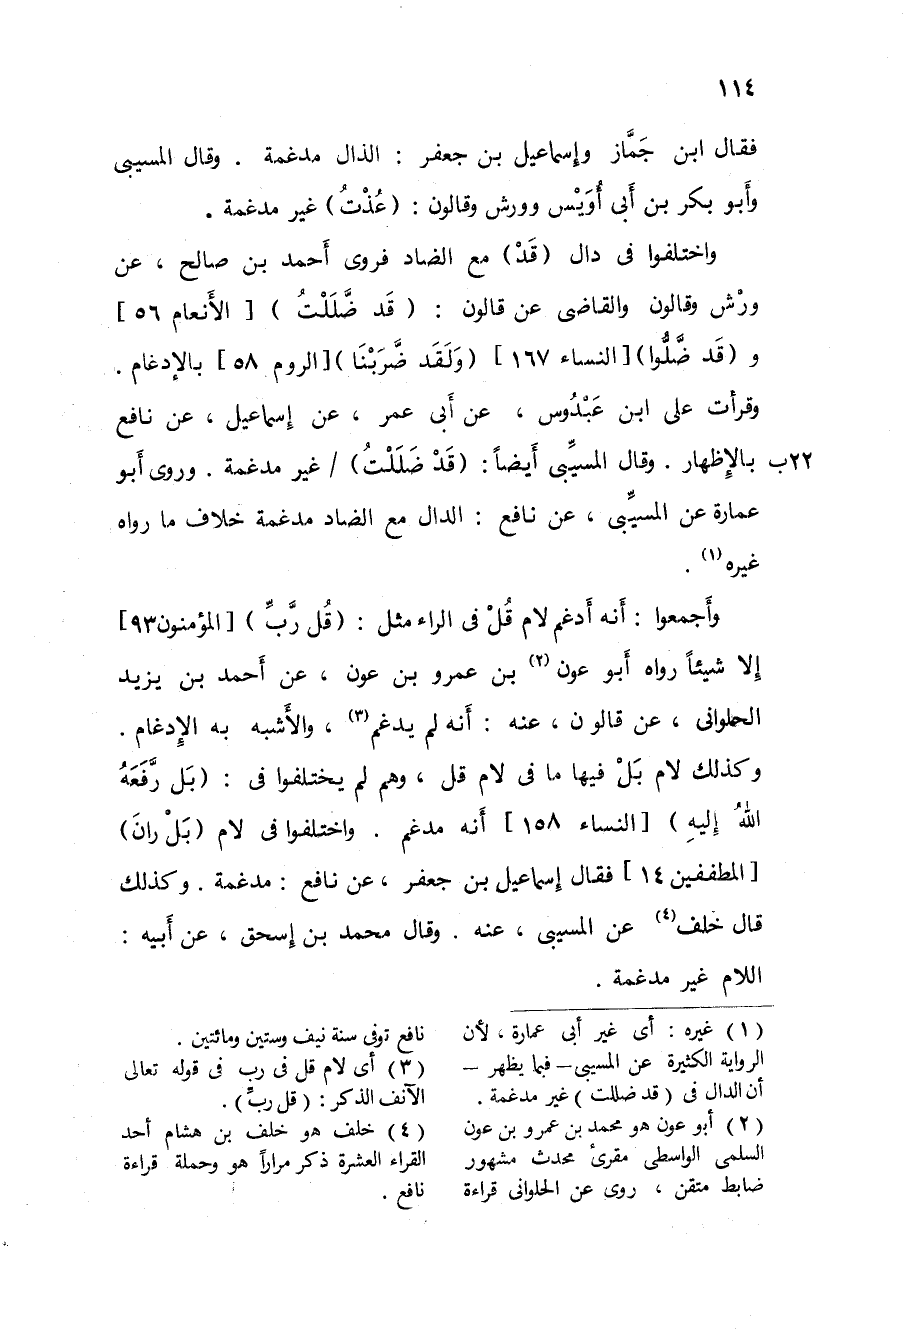 ١١٤
فقال ابن جَمَّاز وإسماعيل بن جعفر : الذال مدغمة . وقال المسيبى
وأَبو بكر بن أَبى أُوَيْس وورش وقالون : (عُذْتُ) غير مدغمة .
واختلفوا فى دال (قَدْ) مع الضاد فروى أَحمد بن صالح ، عن
ورْش وقالون والقاضى عن قالون : ( قَد ضَّلَلْتُ ) [ الأَنعام ٥٦ ]
و (قَد ضَّلُّوا)[النساء ١٦٧ ] (وَلَقَد ضَّرَبْنَا)[الروم ٥٨ ] بالإدغام .
وقرأت على ابن عَبْدُوس ، عن أَبى عمر ، عن إسماعيل ، عن نافع
٢٢ب بالإِظهار . وقال المسيِّبى أَيضاً: (قَدْ ضَلَلْتُ) / غير مدغمة . وروى أَبو
عمارة عن المسيِّبى ، عن نافع : الدال مع الضاد مدغمة خلاف ما رواه
غيره (١) .
وأَجمعوا : أَنه أَدغم لام قُلْ فى الراء مثل : (قُل رَّبِّ ) [المؤمنون٩٣]
إلا شيئاً رواه أَبو عون (٢) بن عمرو بن عون ، عن أَحمد بن يزيد
الحلوانى ، عن قالون ، عنه : أَنه لم يدغم(٣) ، والأَشبه به الإِدغام .
وكذلك لام بَلْ فيها ما فى لام قل ، وهم لم يختلفوا فى : (بَل رَّفَعَهُ
اللهُ إليهِ ) [النساء ١٥٨ ] أَنه مدغم . واختلفوا فى لام (بَلْ رانَ)
[المطففين ١٤ ] فقال إسماعيل بن جعفر ، عن نافع : مدغمة . وكذلك
قال خلف(٤) عن المسيبى ، عنه . وقال محمد بن إسحق ، عن أَبيه :
اللام غير مدغمة .
(١) غيره : أى غير أبى عمارة ، لأن
الرواية الكثيرة عن المسيبى – فيما يظهر –
أن الدال فى ( قد ضللت ) غير مدغمة .
(٢) أبو عون هو محمد بن عمرو بن عون
السلمى الواسطى مقرئ محدث مشهور
ضابط متقن ، روى عن الحلوانى قراءة
نافع توفى سنة نيف وستين ومائتين .
(٣) أى لام قل فى رب فى قوله تعالى
الآنف الذكر : ( قل ربِّ ) .
(٤) خلف هو خلف بن هشام أحد
القراء العشرة ذكر مراراً هو وحملة قراءة
نافع .